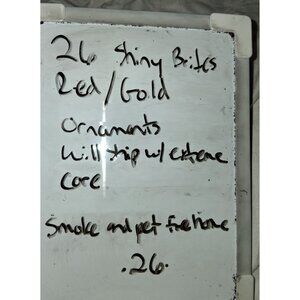 26 Shiny Brites
Red/Gold
Ornaments
Will ship w/ extreme
care
Smoke and pet free home
.26.